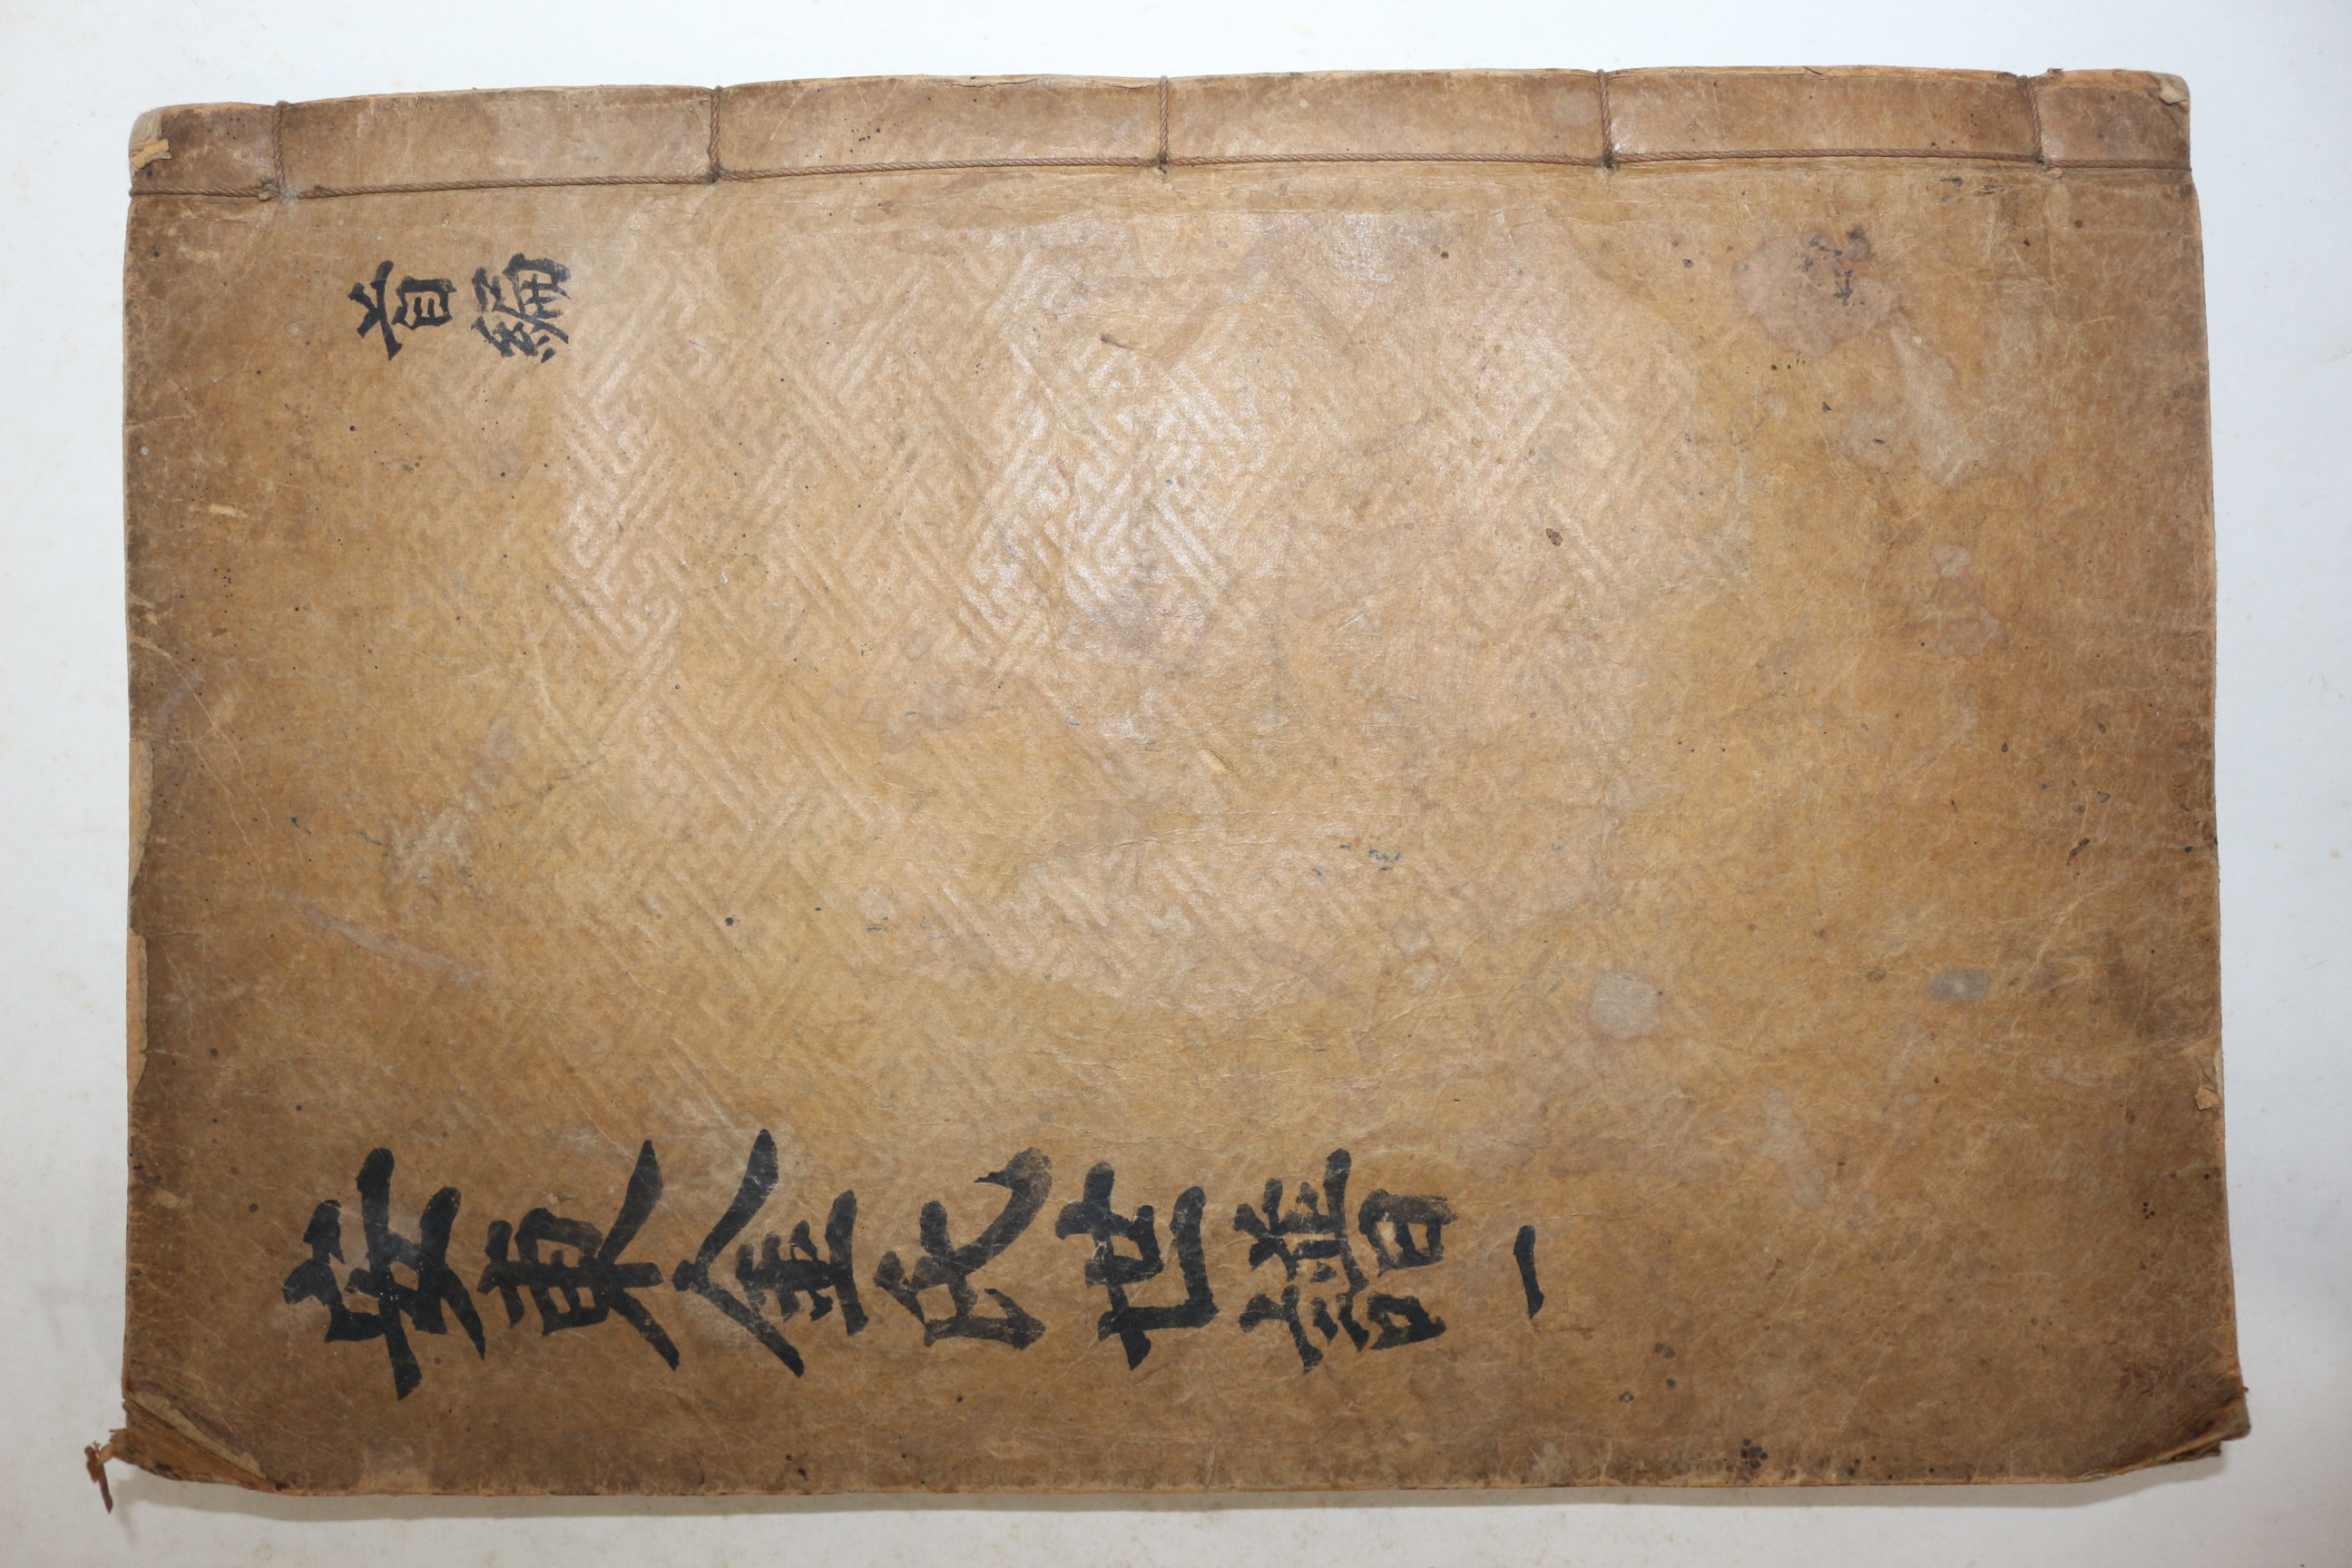 安東金氏世譜 一
首編